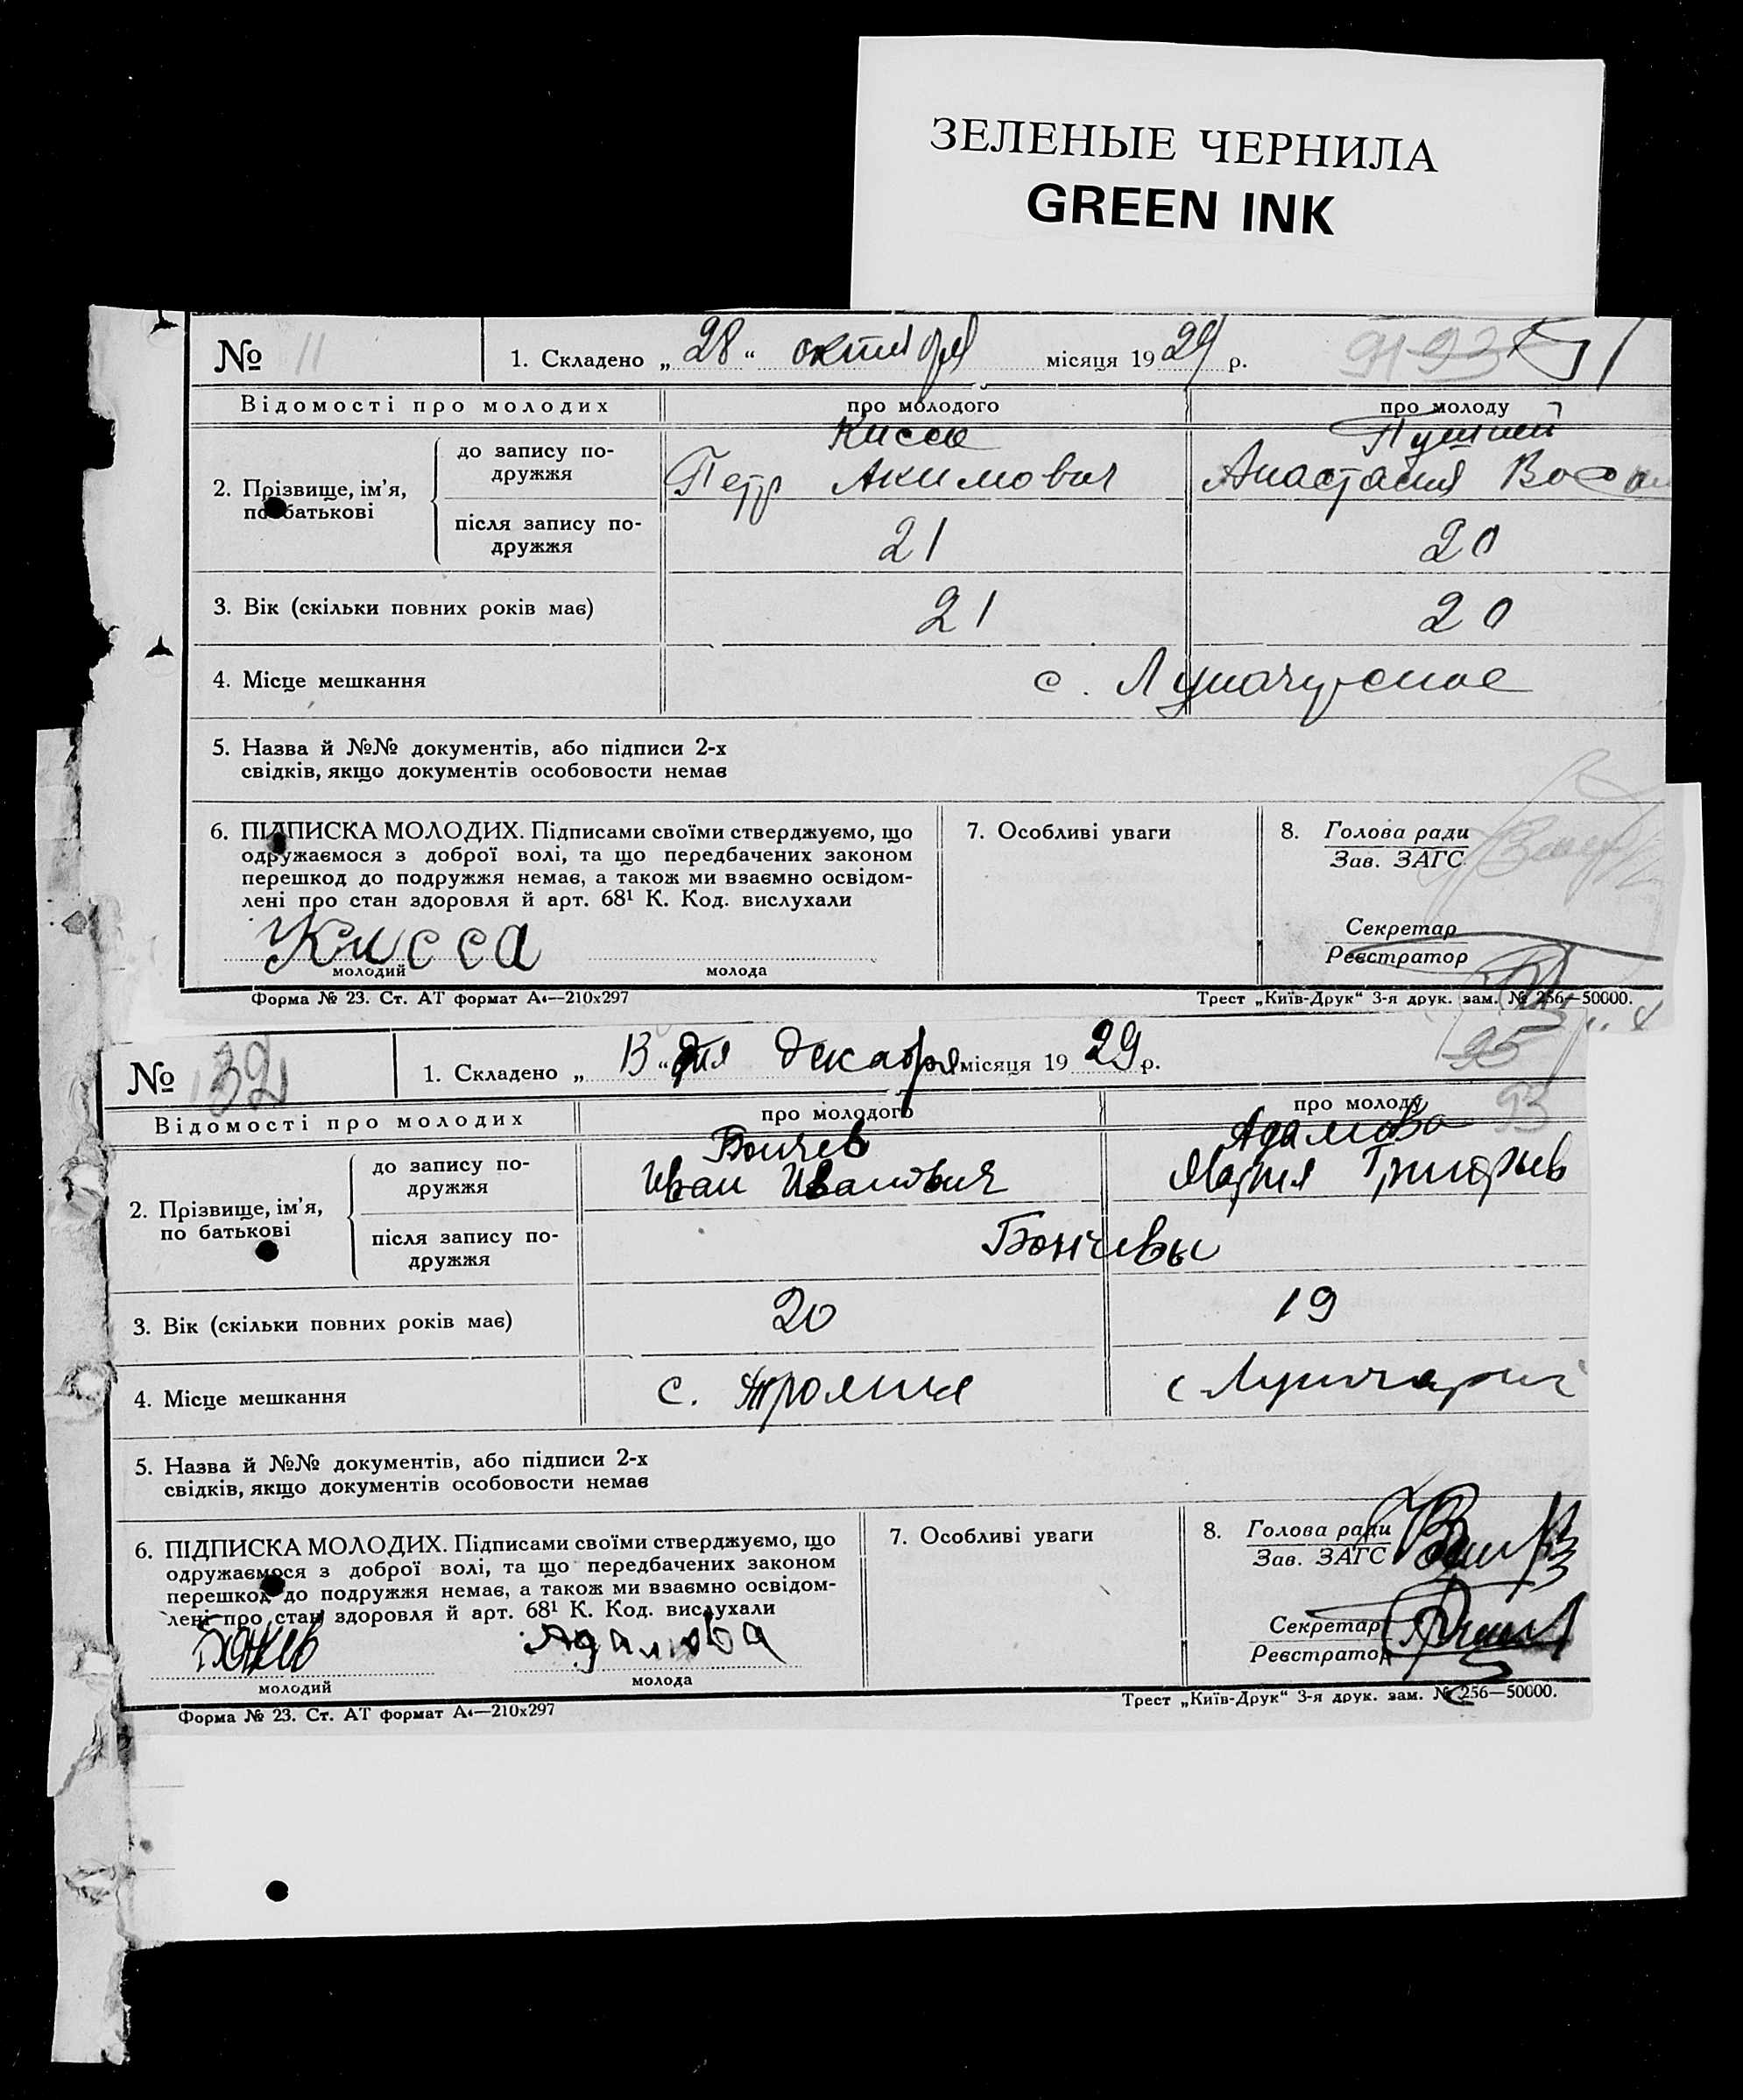 ЗЕЛЕНЫЕ ЧЕРНИЛА
GREEN INK
№ 11
1. Складено „ 28 “ октября місяця 19 29 р.
91 93
Відомості про молодих
про молодого
про молоду
2. Прізвище, ім’я, по батькові
до запису по-
дружжя
Кисса
Петр Акимович
Анастасия
після запису по-
дружжя
21
20
3. Вік (скільки повних років має)
21
20
4. Місце мешкання
с.
5. Назва й №№ документів, або підписи 2-х
свідків, якщо документів особовости немає
6. ПІДПИСКА МОЛОДИХ. Підписами своїми стверджуємо, що
одружаємося з доброї волі, та що передбачених законом
перешкод до подружжя немає, а також ми взаємно освідом-
лені про стан здоровля й арт. 68¹ К. Код. вислухали
Кисса
молодий
молода
7. Особливі уваги
8. Голова ради
Зав. ЗАГС
Секретар
Реєстратор
Форма № 23. Ст. АТ формат А4—210х297
Трест „Київ-Друк“ 3-я друк. зам. № 256—50000.
№ 32
1. Складено „ 13 “ дня декабря місяця 19 29 р.
95
93
Відомості про молодих
про молодого
про молоду
2. Прізвище, ім’я,
по батькові
до запису по-
дружжя
Бончев
Иван Иванович
Адамова
Мария Григорьев
після запису по-
дружжя
Бончевы
3. Вік (скільки повних років має)
20
19
4. Місце мешкання
с. Трояны
с
5. Назва й №№ документів, або підписи 2-х
свідків, якщо документів особовости немає
6. ПІДПИСКА МОЛОДИХ. Підписами своїми стверджуємо, що
одружаємося з доброї волі, та що передбачених законом
перешкод до подружжя немає, а також ми взаємно освідом-
лені про стан здоровля й арт. 68¹ К. Код. вислухали
Адамова
молодий
молода
7. Особливі уваги
8. Голова ради
Зав. ЗАГС
Секретар
Реєстратор
Форма № 23. Ст. АТ формат А4—210х297
Трест „Київ-Друк“ 3-я друк. зам. № 256—50000.